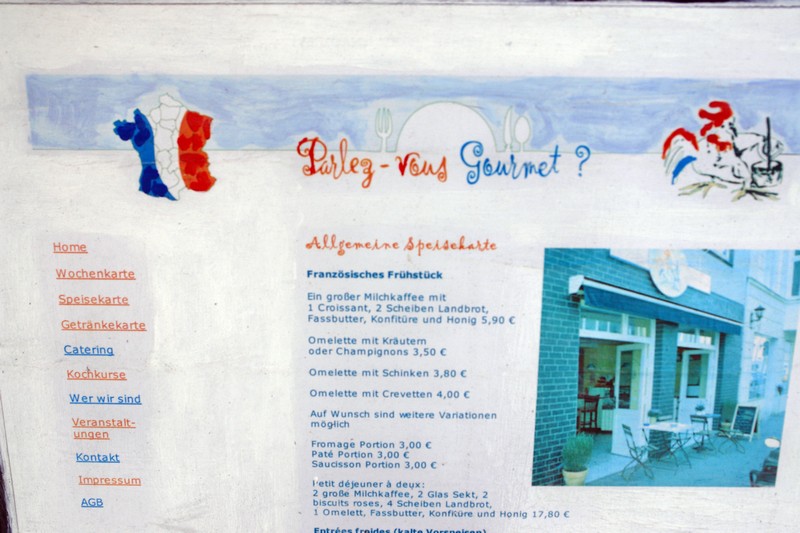 Parlez-vous Gourmet ?
Home
Wochenkarte
Speisekarte
Getränkekarte
Catering
Kochkurse
Wer wir sind
Veranstalt-
ungen
Kontakt
Impressum
AGB
Allgemeine Speisekarte
Französisches Frühstück
Ein großer Milchkaffee mit
1 Croissant, 2 Scheiben Landbrot,
Fassbutter, Konfitüre und Honig 5,90 €
Omelette mit Kräutern
oder Champignons 3,50 €
Omelette mit Schinken 3,80 €
Omelette mit Crevetten 4,00 €
Auf Wunsch sind weitere Variationen
möglich
Fromage Portion 3,00 €
Paté Portion 3,00 €
Saucisson Portion 3,00 €
Petit déjeuner à deux:
2 große Milchkaffee, 2 Glas Sekt, 2
biscuits roses, 4 Scheiben Landbrot,
1 Omelett, Fassbutter, Konfitüre und Honig 17,80 €
Entrées froides (kalte Vorspeisen)